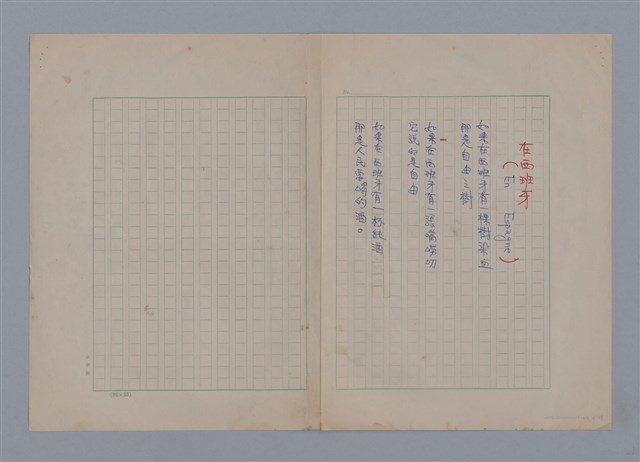 在西班牙
(En Espagne)
如果在西班牙有一棵樹染血
那是自由之樹
如果在西班牙有一張嘴嘮叨
它說的是自由
如果在西班牙有一杯純酒
那是人民要喝的酒。